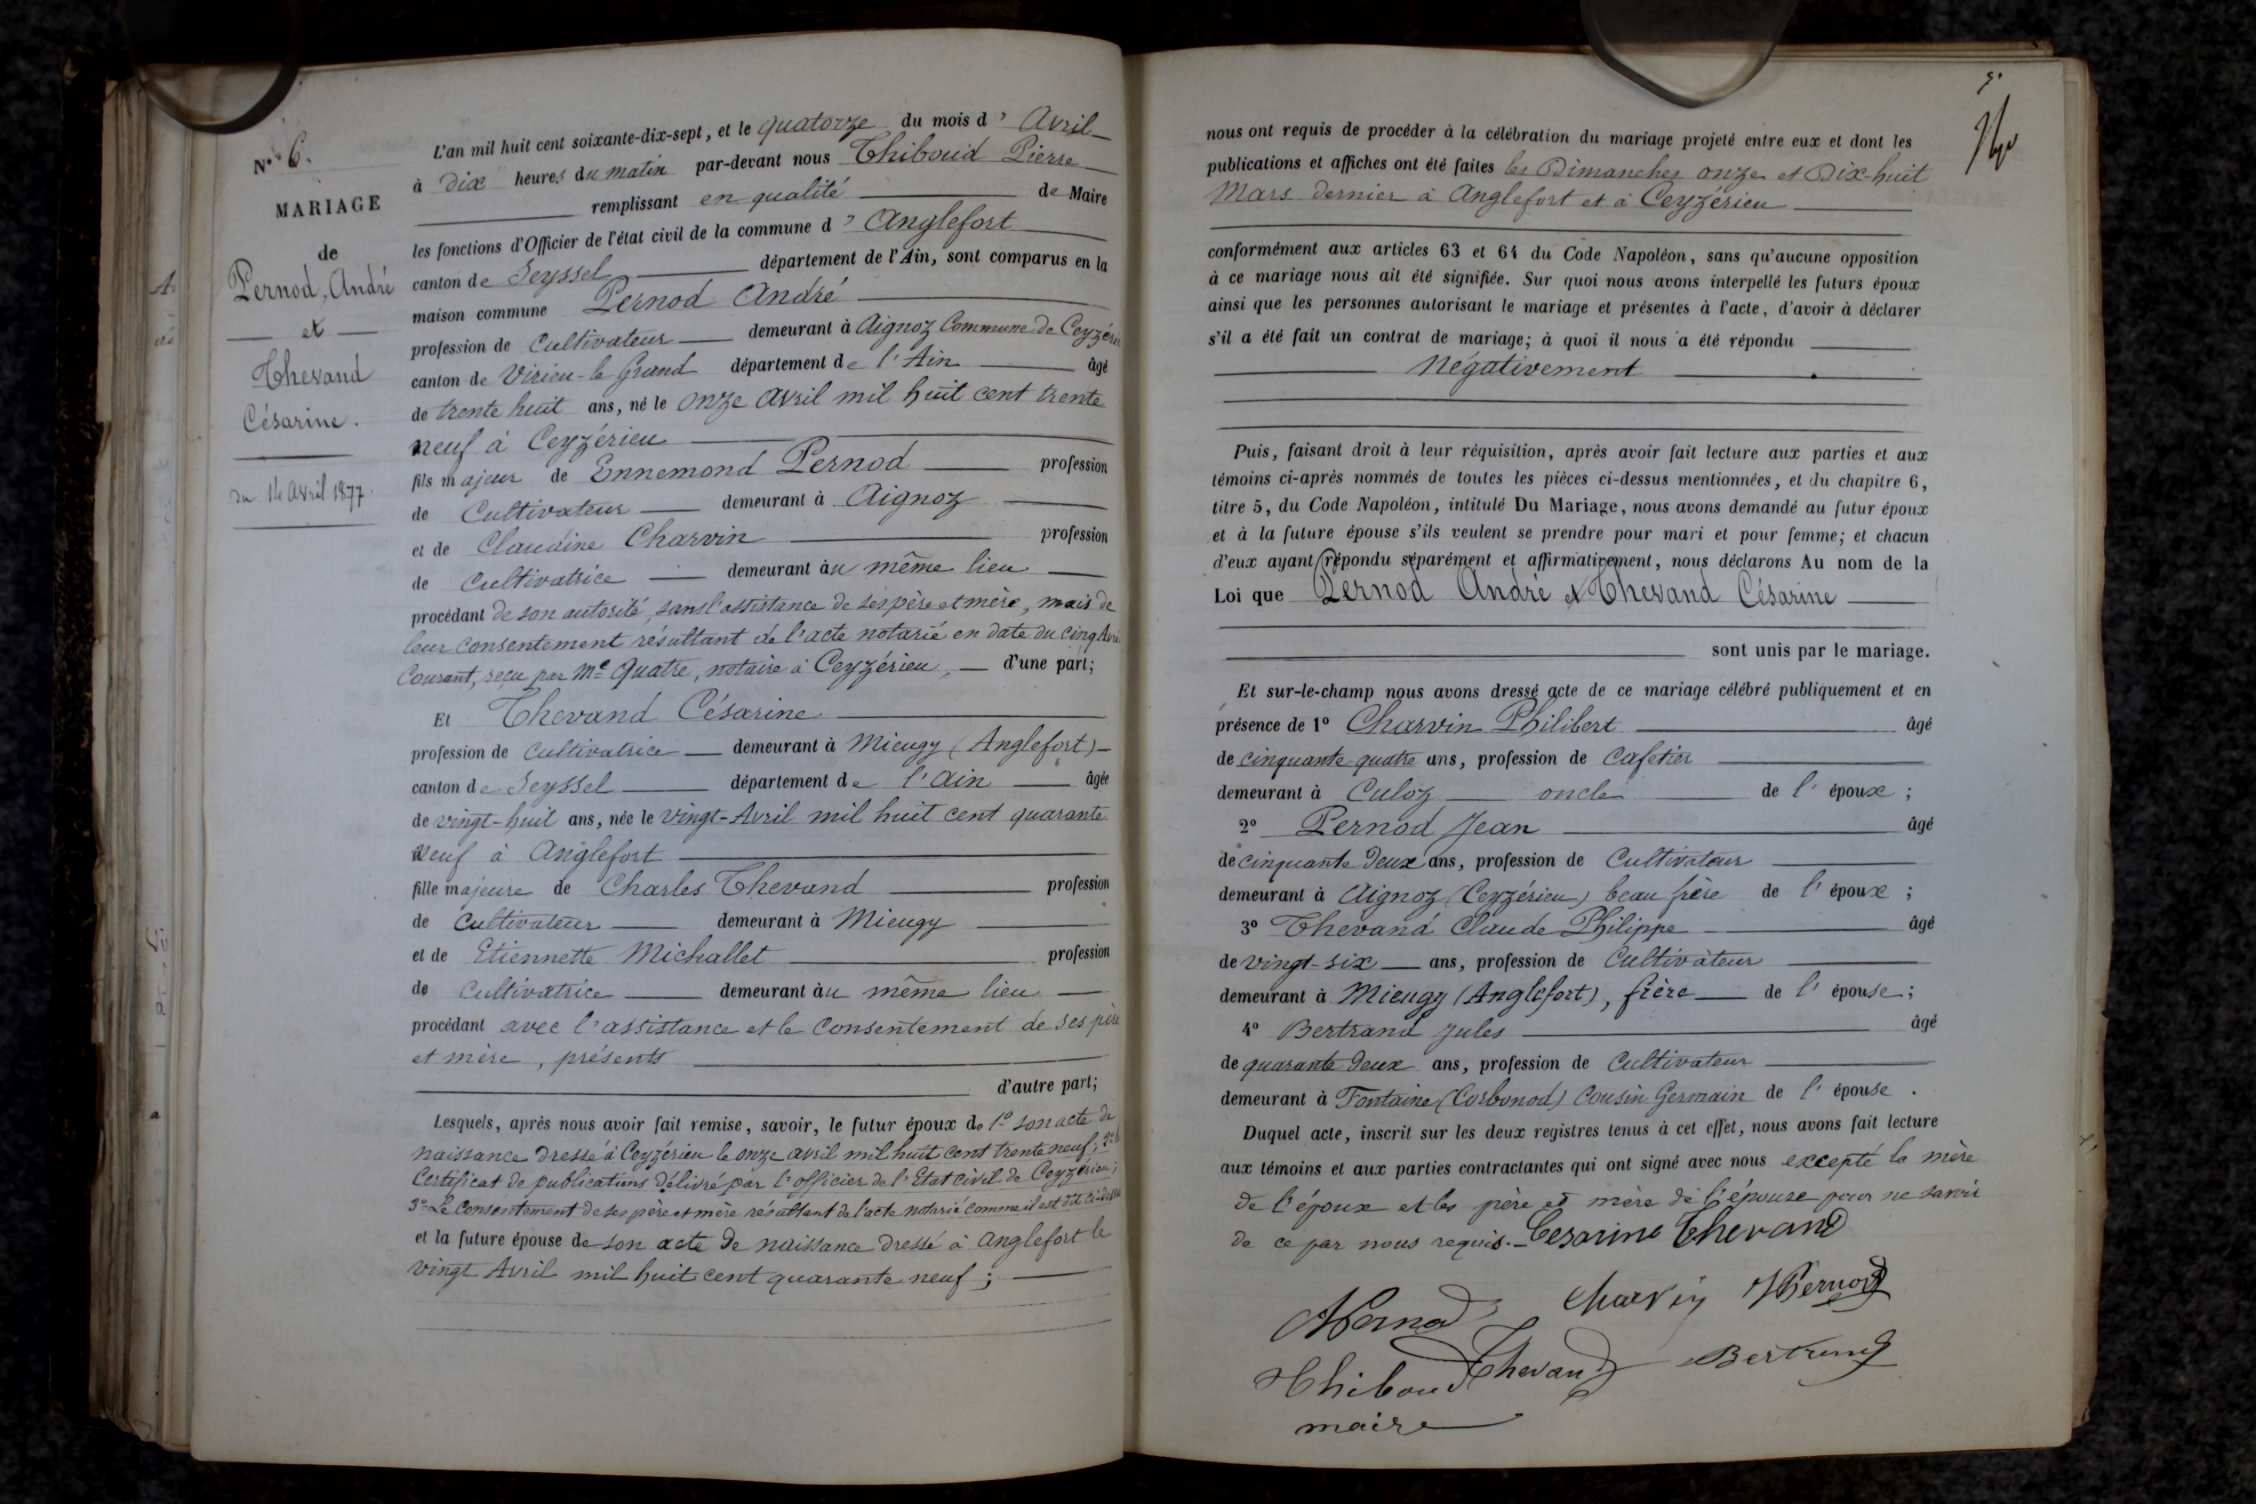 N° 6.
MARIAGE
de
Pernod, André
et
Thevand
Césarine.
du 14 Avril 1877.
L'an mil huit cent soixante-dix-sept, et le quatorze du mois d' Avril
à Dix heures du matin par-devant nous Thiboud Pierre
remplissant en qualité de Maire
les fonctions d'Officier de l'état civil de la commune d' Anglefort
canton de Seyssel département de l'Ain, sont comparus en la
maison commune Pernod André
profession de Cultivateur demeurant à Aignoz Commune de Ceyzérieu
canton de Virieu-le Grand département de l'Ain âgé
de trente huit ans, né le onze Avril mil huit cent trente
neuf à Ceyzérieu
fils majeur de Ennemond Pernod profession
de Cultivateur demeurant à Aignoz
et de Claudine Charvin profession
de Cultivatrice demeurant au même lieu
procédant de son autorité, sans l'assistance de ses père et mère, mais de
leur consentement résultant de l'acte notarié en date du cinq Avril
Courant, reçu par Me Quatre, notaire à Ceyzérieu, d'une part;
Et Thevand Césarine
profession de Cultivatrice demeurant à Mieugy (Anglefort)
canton de Seyssel département de l'Ain âgée
de vingt-huit ans, née le vingt-Avril mil huit cent quarante
neuf à Anglefort
fille majeure de Charles Thevand profession
de Cultivateur demeurant à Mieugy
et de Etiennette Michallet profession
de Cultivatrice demeurant au même lieu
procédant avec l'assistance et le Consentement de ses père
et mère, présents
d'autre part;
Lesquels, après nous avoir fait remise, savoir, le futur époux de 1° son acte de
naissance dressé à Ceyzérieu le onze avril mil huit cent trente neuf; 2° le
Certificat de publications délivré par l'officier de l'Etat civil de Ceyzérieu;
3° Le Consentement de ses père et mère résultant de l'acte notarié comme il est dit ci-dessus
et la future épouse de son acte de naissance dressé à Anglefort le
vingt Avril mil huit cent quarante neuf;
nous ont requis de procéder à la célébration du mariage projeté entre eux et dont les
publications et affiches ont été faites les Dimanches onze et Dix-huit
Mars dernier à Anglefort et à Ceyzérieu
conformément aux articles 63 et 64 du Code Napoléon, sans qu'aucune opposition
à ce mariage nous ait été signifiée. Sur quoi nous avons interpellé les futurs époux
ainsi que les personnes autorisant le mariage et présentes à l'acte, d'avoir à déclarer
s'il a été fait un contrat de mariage; à quoi il nous a été répondu
Négativement
Puis, faisant droit à leur réquisition, après avoir fait lecture aux parties et aux
témoins ci-après nommés de toutes les pièces ci-dessus mentionnées, et du chapitre 6,
titre 5, du Code Napoléon, intitulé Du Mariage, nous avons demandé au futur époux
et à la future épouse s'ils veulent se prendre pour mari et pour femme; et chacun
d'eux ayant répondu séparément et affirmativement, nous déclarons Au nom de la
Loi que Pernod André et Thevand Césarine
sont unis par le mariage.
Et sur-le-champ nous avons dressé acte de ce mariage célébré publiquement et en
présence de 1° Charvin Philibert âgé
de cinquante quatre ans, profession de Cafetier
demeurant à Culoz oncle de l'époux;
2° Pernod Jean âgé
de cinquante Deux ans, profession de Cultivateur
demeurant à Aignoz (Ceyzérieu) beau frère de l'époux;
3° Thevand Claude Philippe âgé
de vingt-six ans, profession de Cultivateur
demeurant à Mieugy (Anglefort), frère de l'épouse;
4° Bertrand Jules âgé
de quarante Deux ans, profession de Cultivateur
demeurant à Fontaine (Corbonod) Cousin Germain de l'épouse.
Duquel acte, inscrit sur les deux registres tenus à cet effet, nous avons fait lecture
aux témoins et aux parties contractantes qui ont signé avec nous excepté la mère
de l'époux et les père et mère de l'épouse pour ne savoir
de ce par nous requis. Cesarine Thevand
APernod Charvin JPernod
Thiboud Thevand Bertrand
maire